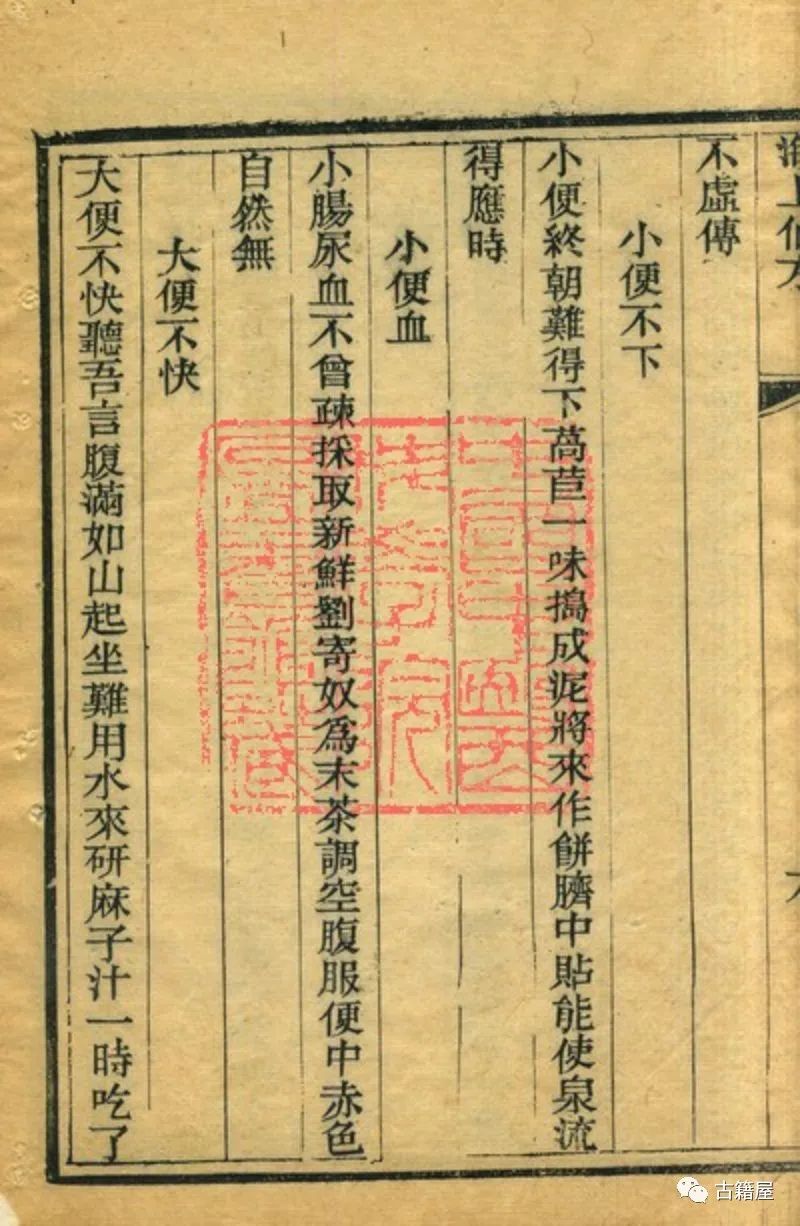 海上仙方
六
不虛傳
小便不下
小便終朝難得下萵苣一味搗成泥將來作餅臍中貼能使泉流
得應時
小便血
小腸尿血不曾疎採取新鮮劉寄奴爲末茶調空腹服便中赤色
自然無
大便不快
大便不快聽吾言腹滿如山起坐難用水來研麻子汁一時吃了
古籍屋